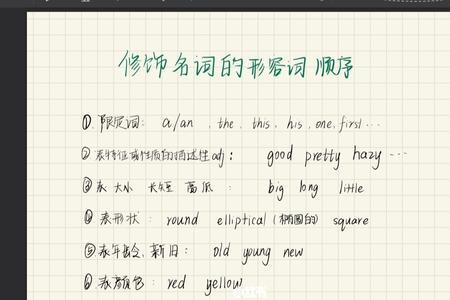 修饰名词的形容词顺序
① 限定词： a/an , the , this , his , one, first ...
② 表特征或性质的描述性adj： good pretty hazy ...
③ 表大小 长短 高低： big long little
④ 表形状： round elliptical (椭圆的) square
⑤ 表年龄、新旧： old young new
⑥ 表颜色： red yellow
小红书